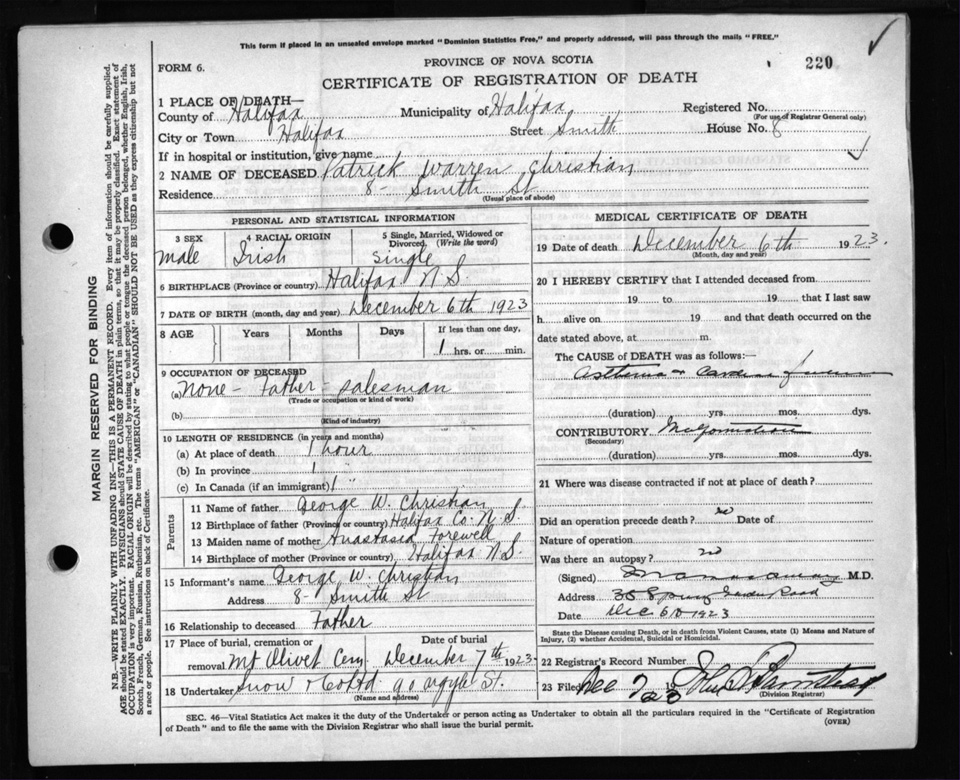 This form if placed in an unsealed envelope marked "Dominion Statistics Free," and properly addressed, will pass through the mails "FREE."
FORM 6.
PROVINCE OF NOVA SCOTIA
220
CERTIFICATE OF REGISTRATION OF DEATH
1 PLACE OF DEATH—
County of Halifax Municipality of Halifax Registered No.
(For use of Registrar General only)
City or Town Halifax Street Smith House No. 8
If in hospital or institution, give name
2 NAME OF DECEASED Patrick Warren Christian
Residence 8 - Smith St
(Usual place of abode)
PERSONAL AND STATISTICAL INFORMATION
3 SEX 4 RACIAL ORIGIN 5 Single, Married, Widowed or Divorced. (Write the word)
male Irish single
6 BIRTHPLACE (Province or country) Halifax N.S.
7 DATE OF BIRTH (month, day and year) December 6th 1923
8 AGE Years Months Days If less than one day,
1 hrs. or min.
9 OCCUPATION OF DECEASED
(a) None - Father - salesman
(Trade or occupation or kind of work)
(b)
(Kind of industry)
10 LENGTH OF RESIDENCE (in years and months)
(a) At place of death 1 hour
(b) In province 1 "
(c) In Canada (if an immigrant) 1 "
Parents
11 Name of father George W. Christian
12 Birthplace of father (Province or country) Halifax Co. N.S.
13 Maiden name of mother Anastasia
14 Birthplace of mother (Province or country) Halifax N.S.
15 Informant's name George W. Christian
Address 8 - Smith St
16 Relationship to deceased Father
17 Place of burial, cremation or removal Mt Olivet Cem. Date of burial December 7th 1923.
18 Undertaker Snow & Co Ltd 90 Argyle St.
(Name and address)
MEDICAL CERTIFICATE OF DEATH
19 Date of death December 6th 1923.
(Month, day and year)
20 I HEREBY CERTIFY that I attended deceased from
19 to 19 that I last saw
h alive on 19 and that death occurred on the
date stated above, at m.
The CAUSE of DEATH was as follows:—
Asthenia &
(duration) yrs. mos. dys.
CONTRIBUTORY
(Secondary)
(duration) yrs. mos. dys.
21 Where was disease contracted if not at place of death?
Did an operation precede death? no Date of
Nature of operation
Was there an autopsy? no
(Signed) M.D.
Address Spring Garden Road
Date Dec 6 1923
State the Disease causing Death, or in death from Violent Causes, state (1) Means and Nature of
Injury, (2) whether Accidental, Suicidal or Homicidal.
22 Registrar's Record Number
23 Filed Dec 7 19
(Division Registrar)
SEC. 46—Vital Statistics Act makes it the duty of the Undertaker or person acting as Undertaker to obtain all the particulars required in the "Certificate of Registration
of Death" and to file the same with the Division Registrar who shall issue the burial permit.
(OVER)
MARGIN RESERVED FOR BINDING
N.B.—WRITE PLAINLY WITH UNFADING INK—THIS IS A PERMANENT RECORD. Every item of information should be carefully supplied.
AGE should be stated EXACTLY. PHYSICIANS should STATE CAUSE OF DEATH in plain terms, so that it may be properly classified. Exact statement of
OCCUPATION is very important. RACIAL ORIGIN will be described by stating to what people or tongue the deceased person belonged, whether English, Irish,
Scotch, French, German, Russian, Ruthenian, etc. The terms "AMERICAN" or "CANADIAN" SHOULD NOT BE USED as they express citizenship but not
a race or people. See instructions on back of Certificate.